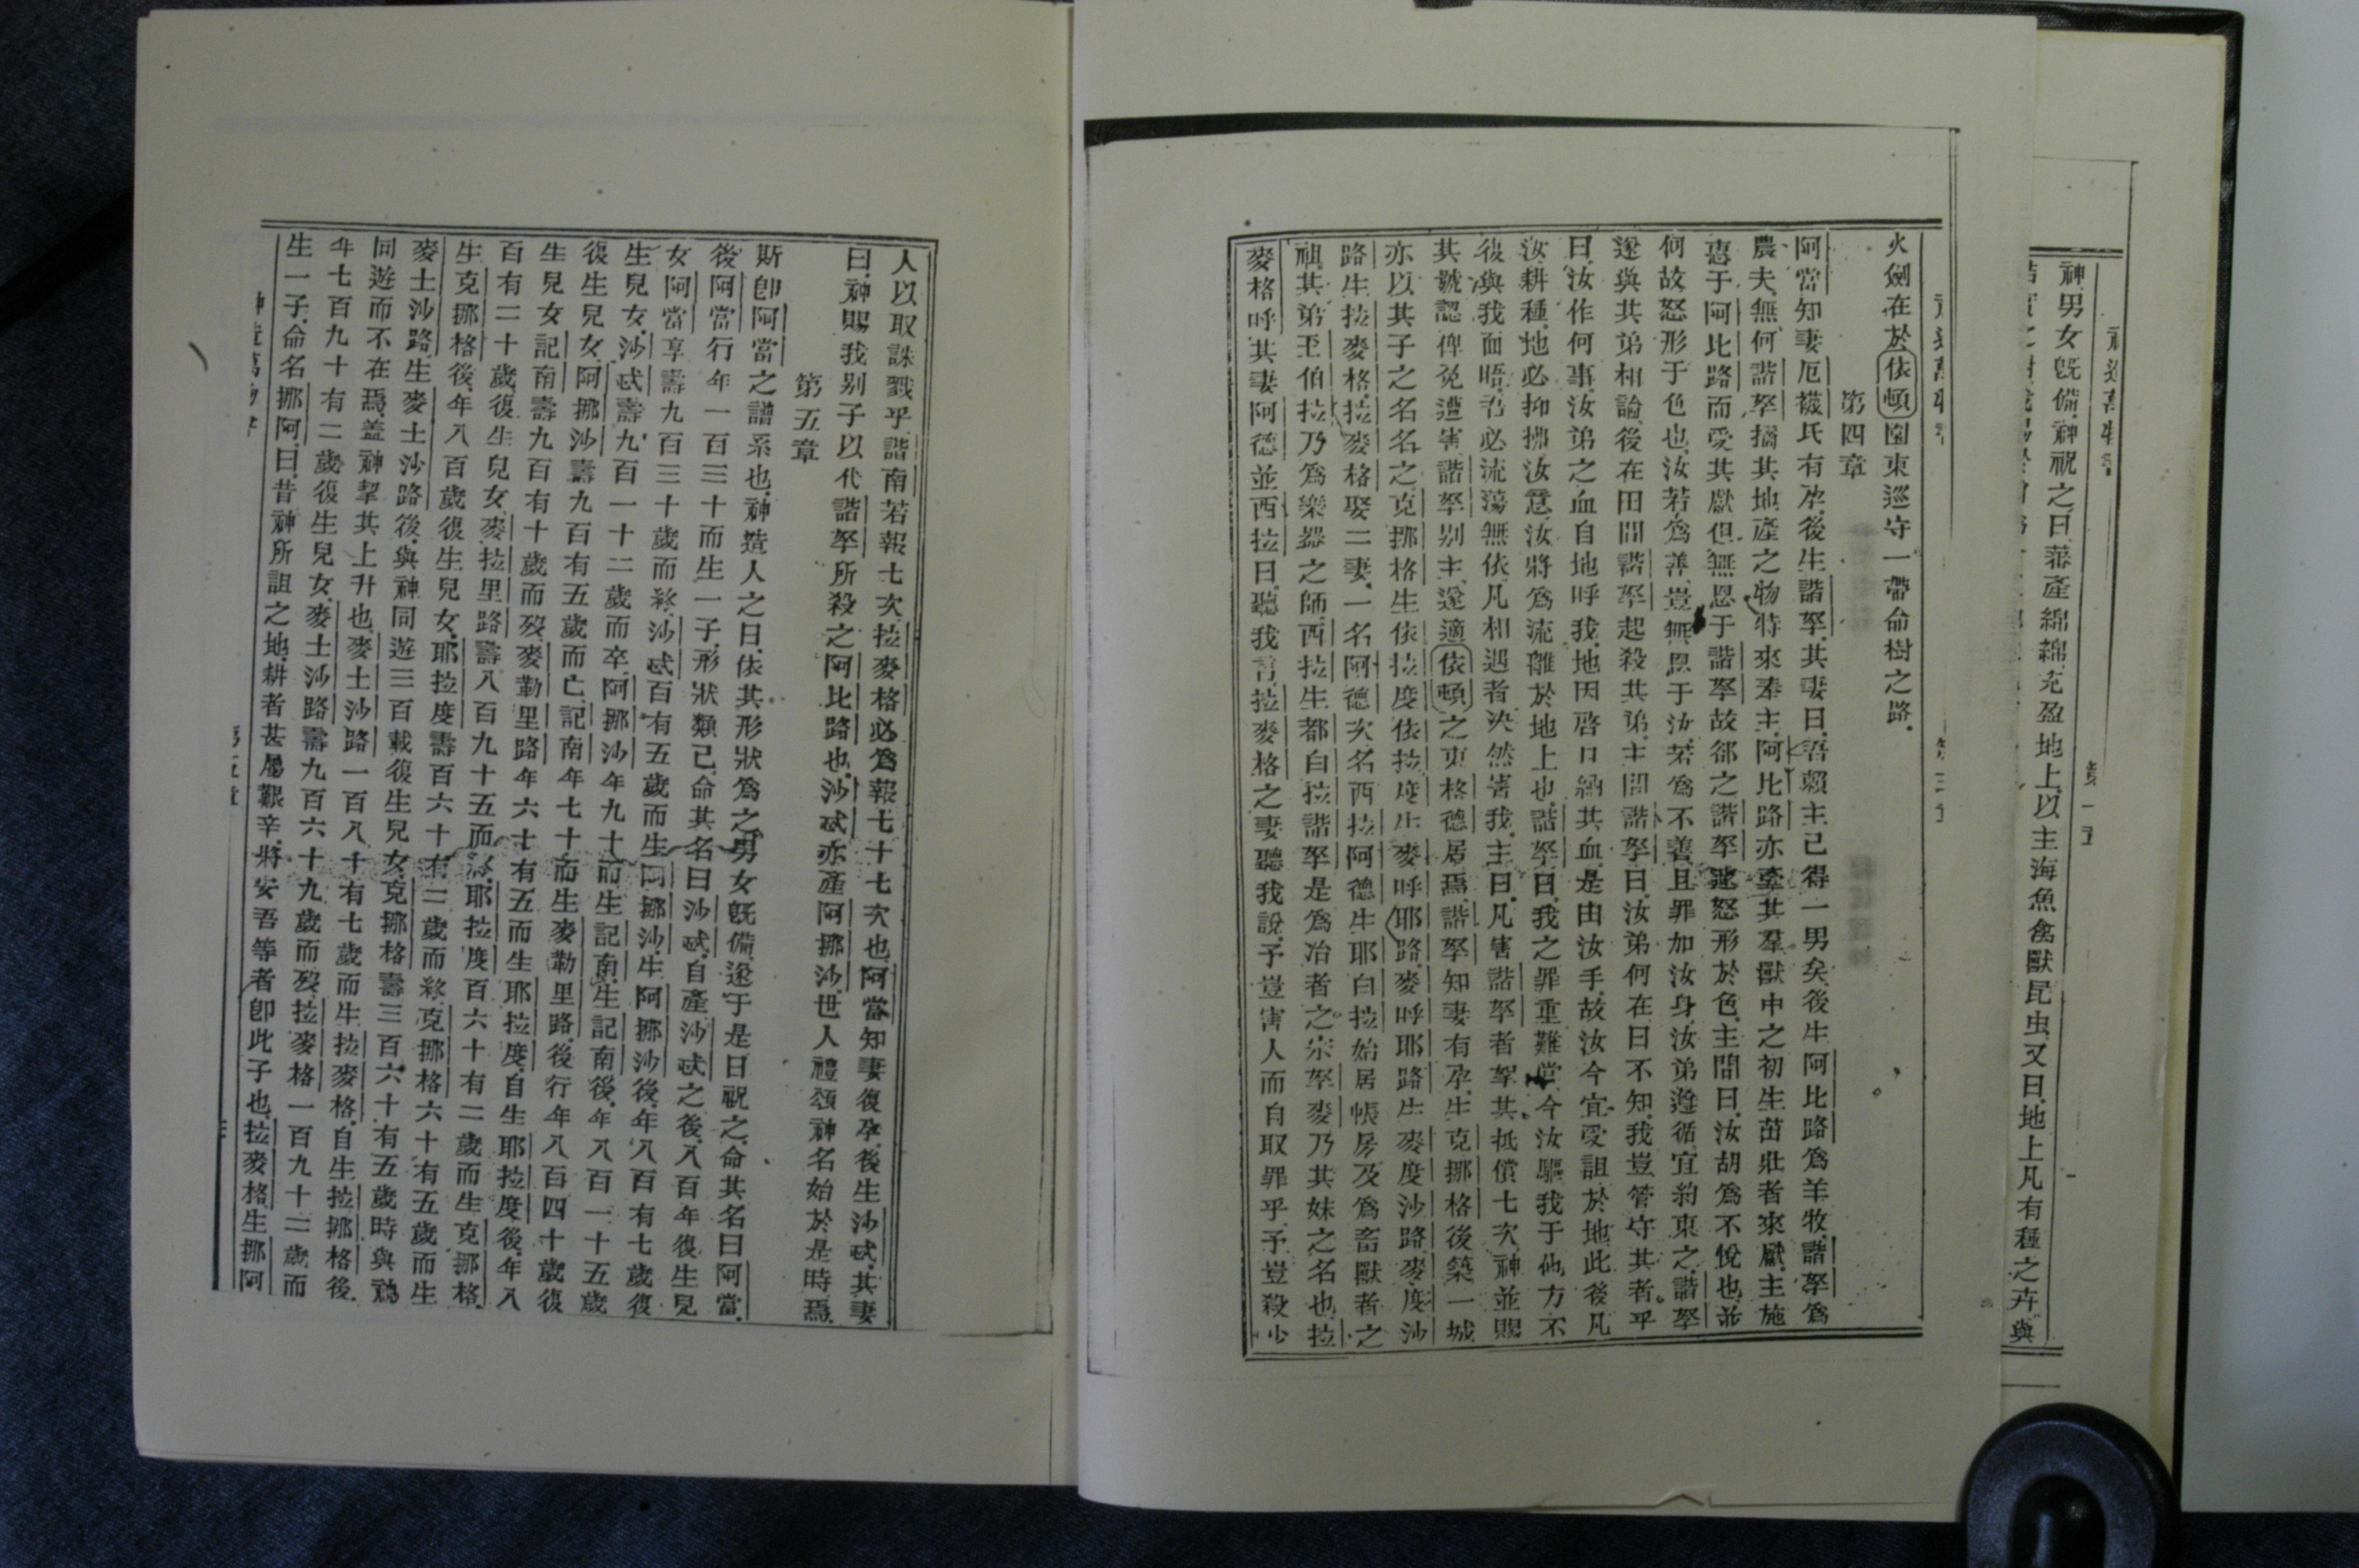 神男女旣備神祝之曰蕃產綿綿充盈地上以主海魚禽獸昆虫又曰地上凡有種之卉與
火劍在於依頓園東巡守一帶命樹之路
第四章
阿當知妻厄襪氏有孕後生諧拏其妻曰吾賴主已得一男矣後生阿比路爲羊牧諧拏爲
農夫無何諧拏攜其地產之物特來奉主阿比路亦牽其羣獸中之初生茁壯者來獻主施
恩于阿比路而受其獻但無恩于諧拏故郤之諧拏怒形於色主問曰汝胡爲不悅也並
何故怒形于色也汝若爲善豈無恩于汝若爲不善且罪加汝身汝弟遜循宜約束之諧拏
遂與其弟相論後在田間諧拏起殺其弟主問諧拏曰汝弟何在曰不知我豈管守其者乎
曰汝作何事汝弟之血自地呼我地因啓口納其血是由汝手故汝今宜受詛於地此後凡
汝耕種地必抑拂汝意汝將爲流離於地上也諧拏曰我之罪重難當今汝驅我于他方不
復與我面晤吾必流蕩無依凡相遇者決然害我主曰凡害諧拏者拏其抵償七次神並賜
其號認俾免遭害諧拏别主遂適依頓之東格德居焉諧拏知妻有孕生克挪格後築一城
亦以其子之名名之克挪格生依拉度依拉度生麥呼耶路麥呼耶路生麥度沙路麥度沙
路生拉麥格拉麥格娶二妻一名阿德次名西拉阿德生耶白拉始居帳房及爲畜獸者之
祖其弟乇伯拉乃爲樂器之師西拉生都白拉諧拏是爲冶者之宗拏麥乃其妹之名也拉
麥格呼其妻阿德並西拉曰聽我言拉麥格之妻聽我說予豈害人而自取罪乎予豈殺少
人以取誅戮乎諧南若報七次拉麥格必爲報七十七次也阿當知妻復孕後生沙忒其妻
曰神賜我别子以代諧拏所殺之阿比路也沙忒亦產阿挪沙世人禮頌神名始於是時焉
第五章
斯卽阿當之譜系也神造人之日依其形狀爲之男女旣備遂于是日祝之命其名曰阿當
後阿當行年一百三十而生一子形狀類己命其名曰沙忒自產沙忒之後八百年復生兒
女阿當享壽九百三十歲而終沙忒百有五歲而生阿挪沙生阿挪沙後年八百有七歲復
生兒女沙忒壽九百一十二歲而卒阿挪沙年九十而生記南生記南後年八百一十五歲
復生兒女阿挪沙壽九百有五歲而亡記南年七十而生麥勒里路後行年八百四十歲復
生兒女記南壽九百有十歲而歿麥勒里路年六十有五而生耶拉度自生耶拉度後年八
百有三十歲復生兒女麥拉里路壽八百九十五而終耶拉度百六十有二歲而生克挪格
生克挪格後年八百歲復生兒女耶拉度壽百六十有二歲而終克挪格六十有五歲而生
麥土沙路生麥土沙路後與神同遊三百載復生兒女克挪格壽三百六十有五歲時與神
同遊而不在焉蓋神挈其上升也麥土沙路一百八十有七歲而生拉麥格自生拉挪格後
年七百九十有二歲復生兒女麥土沙路壽九百六十九歲而歿拉麥格一百九十二歲而
生一子命名挪阿曰昔神所詛之地耕者甚屬艱辛將安吾等者卽此子也拉麥格生挪阿